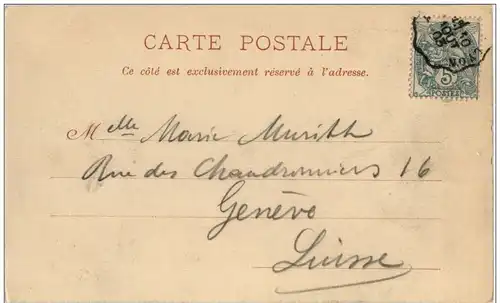 CARTE POSTALE
Ce côté est exclusivement réservé à l'adresse.
Melle Marie Murith
Rue des Chaudronniers 16
Genève
Suisse
5
POSTES